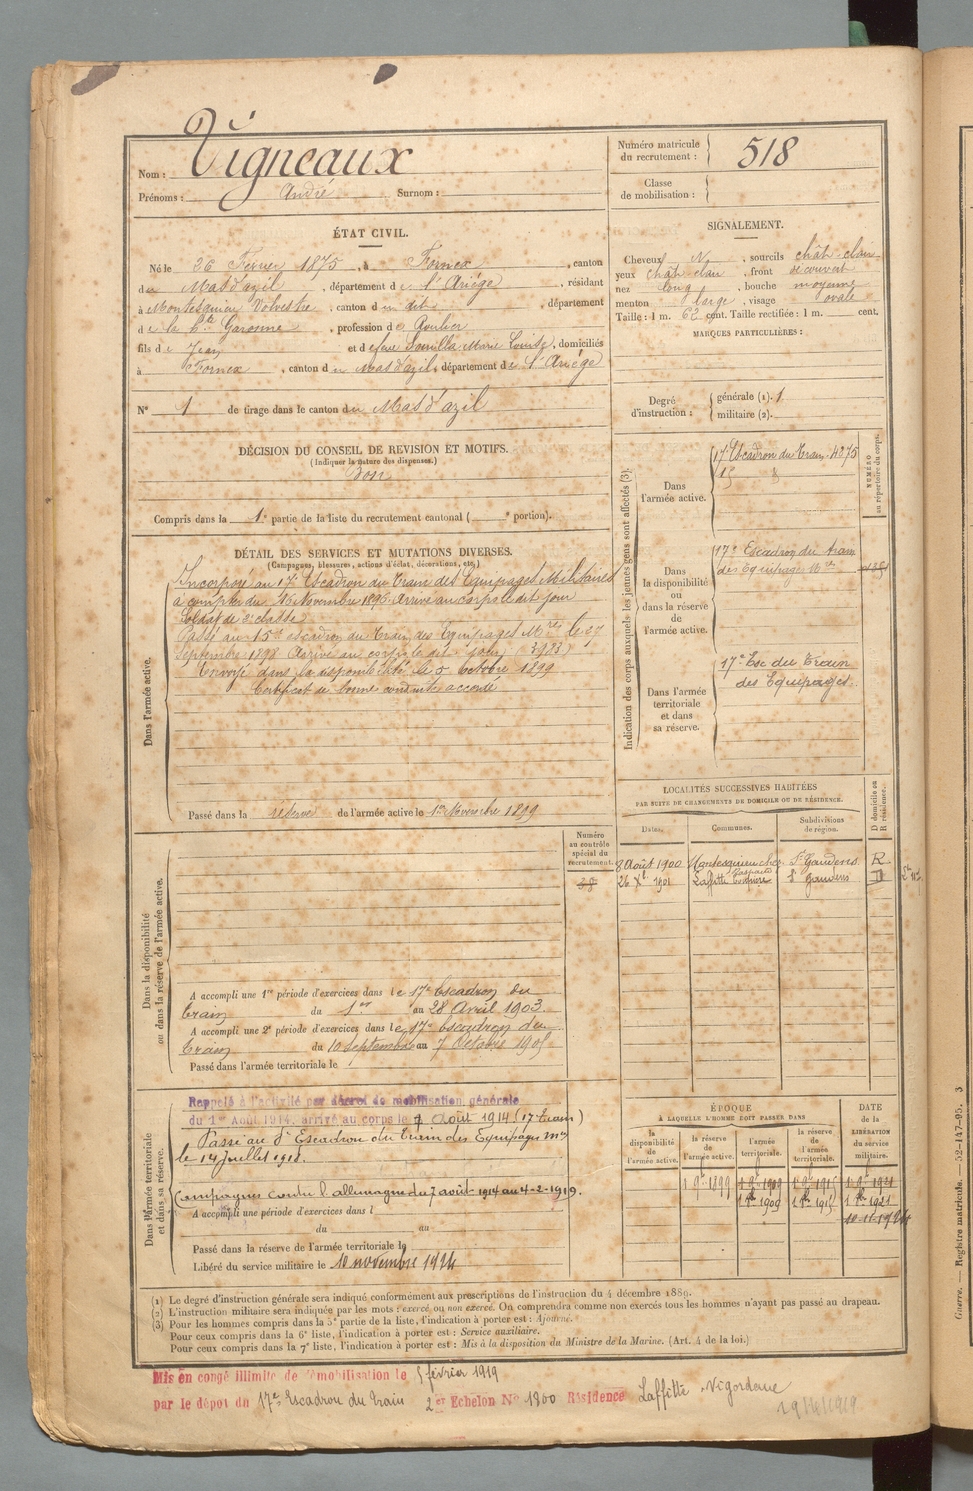 Nom : Vigneaux
Prénoms : André Surnom :
Numéro matricule du recrutement : 518
Classe de mobilisation :
ÉTAT CIVIL.
Né le 26 Février 1875, à Fornex, canton
du Mas d'azil, département de l'Ariège, résidant
à Montesquieu Volvestre, canton du dit, département
de la Hte Garonne, profession de Roulier
fils de Jean et de feue Marie Louise, domiciliés
à Fornex, canton du Mas d'azil, département de l'Ariège
N° 1 de tirage dans le canton du Mas d'azil
SIGNALEMENT.
Cheveux N, sourcils chât-clair
yeux chât clair, front découvert
nez long, bouche moyenne
menton large, visage ovale
Taille : 1 m. 62 cent. Taille rectifiée : 1 m. cent.
MARQUES PARTICULIÈRES :
Degré d'instruction : générale (1). 1
militaire (2).
DÉCISION DU CONSEIL DE REVISION ET MOTIFS.
(Indiquer la nature des dispenses.)
Bon
Compris dans la 1e partie de la liste du recrutement cantonal ( e portion).
DÉTAIL DES SERVICES ET MUTATIONS DIVERSES.
(Campagnes, blessures, actions d'éclat, décorations, etc.)
Dans l'armée active.
Incorporé au 17e Escadron du Train des Equipages Militaires
à compter du 16 Novembre 1896. Arrivé au corps le dit jour
Soldat de 2e classe
Passé au 15e escadron du Train des Equipages Mres le 27
Septembre 1898 Arrivé au corps le dit jour (3983)
Envoyé dans la disponibilité le 5 Octobre 1899
Certificat de bonne conduite accordé
Passé dans la réserve de l'armée active le 1er Novembre 1899
Indication des corps auxquels les jeunes gens sont affectés (3).
NUMÉRO au répertoire du corps.
Dans l'armée active.
17e Escadron du Train 4875
15
Dans la disponibilité ou dans la réserve de l'armée active.
17e Escadron du train
des Equipages Mres
Dans l'armée territoriale et dans sa réserve.
17e Esc du Train
des Equipages
LOCALITÉS SUCCESSIVES HABITÉES
PAR SUITE DE CHANGEMENTS DE DOMICILE OU DE RÉSIDENCE.
Dates. Communes. Subdivisions de région. D domicile ou R résidence.
8 Août 1900 St Gaudens R
26 Xe 1901 Laffitte St Gaudens D
Dans la disponibilité ou dans la réserve de l'armée active.
Numéro au contrôle spécial du recrutement.
A accompli une 1re période d'exercices dans le 17e Escadron du
train du 1er au 28 Avril 1903
A accompli une 2e période d'exercices dans le 17e Escadron du
train du 10 septembre au 7 Octobre 1905
Passé dans l'armée territoriale le
Dans l'armée territoriale et dans sa réserve.
Rappelé à l'activité par décret de mobilisation générale
du 1er Août 1914, arrivé au corps le 7 Août 1914 (17e Train)
Passé au Escadron du Train des Equipages Mres
le 14 juillet 1918.
Campagnes contre l'allemagne du 7 août 1914 au 4-2-1919.
A accompli une période d'exercices dans l
du au
Passé dans la réserve de l'armée territoriale le
Libéré du service militaire le 10 novembre 1924
ÉPOQUE
À LAQUELLE L'HOMME DOIT PASSER DANS
la disponibilité de l'armée active. la réserve de l'armée active. l'armée territoriale. la réserve de l'armée territoriale.
DATE de la LIBÉRATION du service militaire.
1 9e 1899 1 9e 1909 1 9e 1915 1 9e 1921
1909 1915 1921
10-11-1924
(1) Le degré d'instruction générale sera indiqué conformément aux prescriptions de l'instruction du 4 décembre 1889.
(2) L'instruction militaire sera indiquée par les mots : exercé ou non exercé. On comprendra comme non exercés tous les hommes n'ayant pas passé au drapeau.
(3) Pour les hommes compris dans la 5e partie de la liste, l'indication à porter est : Ajourné.
Pour ceux compris dans la 6e liste, l'indication à porter est : Service auxiliaire.
Pour ceux compris dans la 7e liste, l'indication à porter est : Mis à la disposition du Ministre de la Marine. (Art. 4 de la loi.)
Mis en congé illimité de démobilisation le 5 février 1919
par le dépôt du 17e Escadron du Train 2er Echelon N° 1800 Résidence Laffitte Vigordane
Guerre. — Registre matricule. 52-147-95. 3